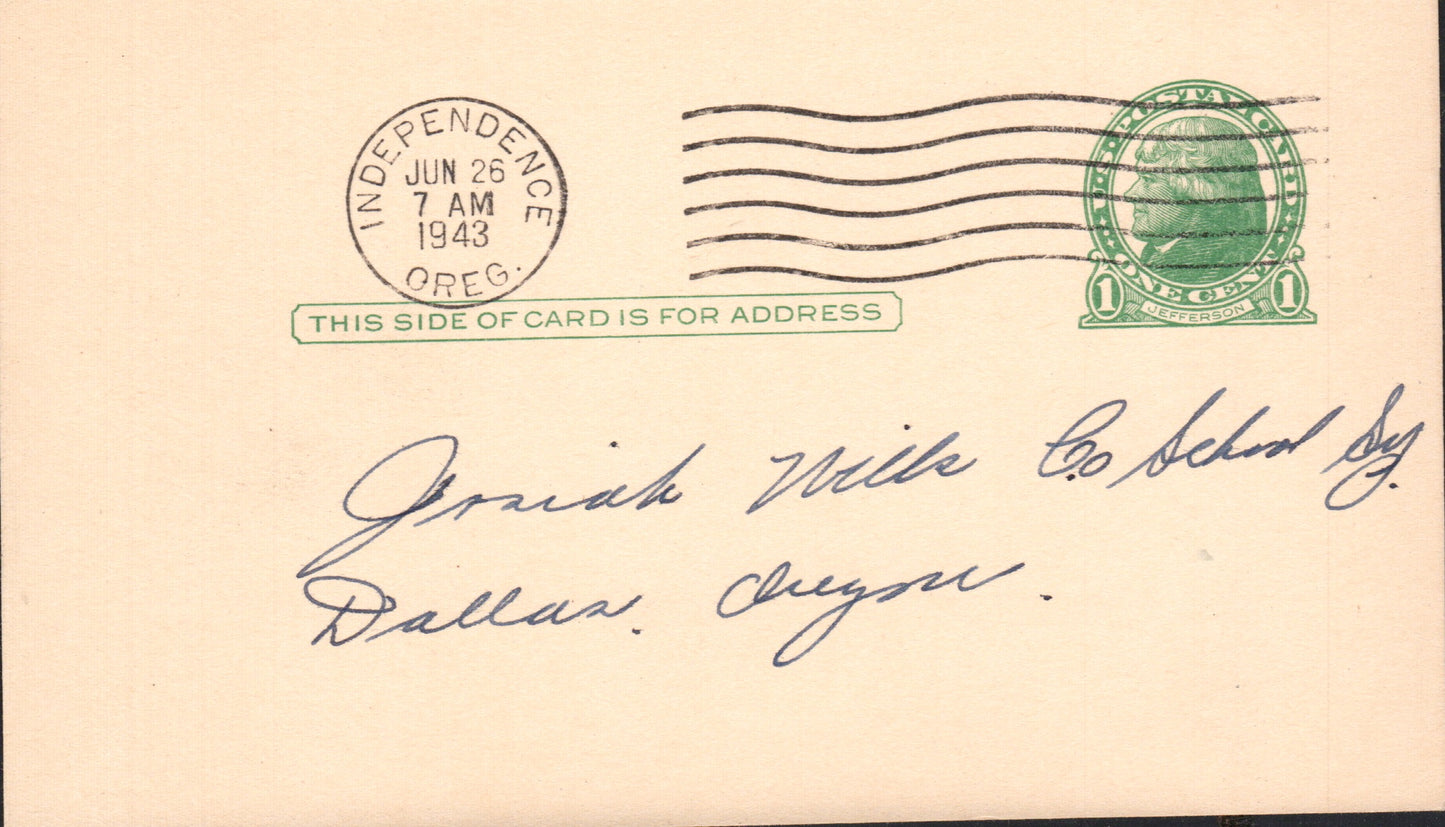 INDEPENDENCE
JUN 26
7 AM
1943
OREG.
U.S. POSTAL CARD
ONE CENT
1 JEFFERSON 1
THIS SIDE OF CARD IS FOR ADDRESS
Josiah Wills Co School Sy.
Dallas. Oregon.